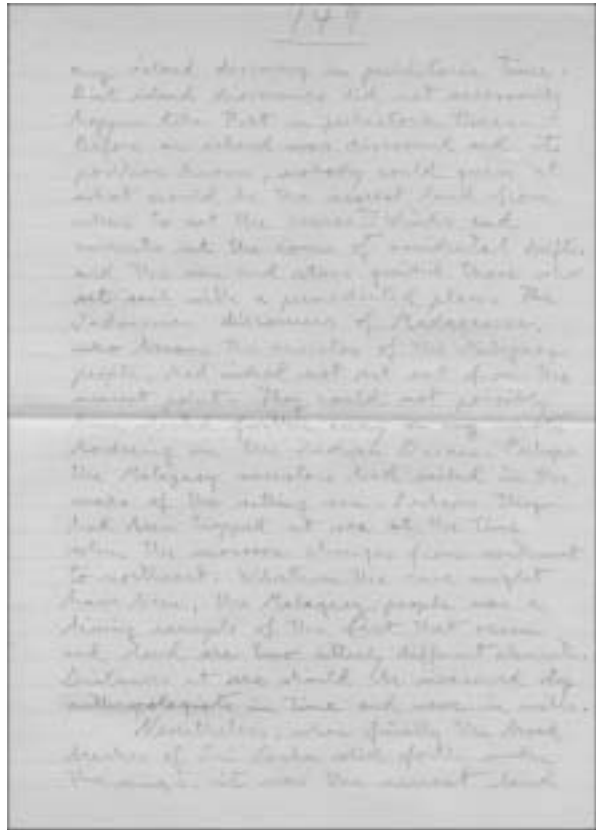 149
any island discovery in prehistoric time.
But island discoveries did not necessarily
happen like that in prehistoric times.
Before an island was discovered and its
position known, nobody could guess at
what would be the nearest land from
where to set the course. Winds and
currents set the course of accidental drifts,
and the sun and stars guided those who
set sail with a premeditated plan. The
Indonesian discoverers of Madagascar,
who became the ancestors of the Malagasy
people, had indeed not set out from the
nearest point. They could not possibly
have
in the Indian Ocean. Perhaps
the Malagasy ancestors had sailed in the
wake of the setting sun. Perhaps they
had been trapped at sea at the time
when the monsoon changes from southwest
to northeast. Whatever the case might
have been, the Malagasy people was a
living example of the fact that ocean
and land are two utterly different elements.
Distances at sea should be measured by
anthropologists in time and never in miles.
Nevertheless, when finally the broad
of Sri Lanka
it was the nearest land